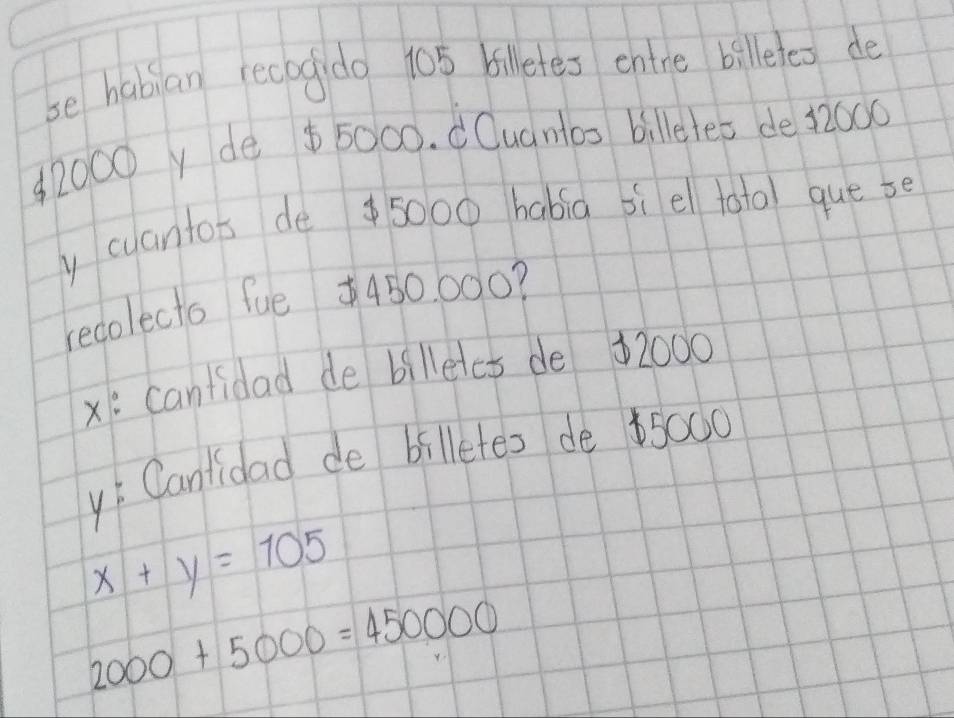 se habian recogido 105 billetes entre billetes de
$2000 y de $5000. ¿Cuantos billetes de $2000
y cuantos de $5000 habia si el total que se
recolecto fue $450.000?
x: cantidad de billetes de $2000
y: Cantidad de billetes de $5000
x + y = 105
2000 + 5000 = 450000